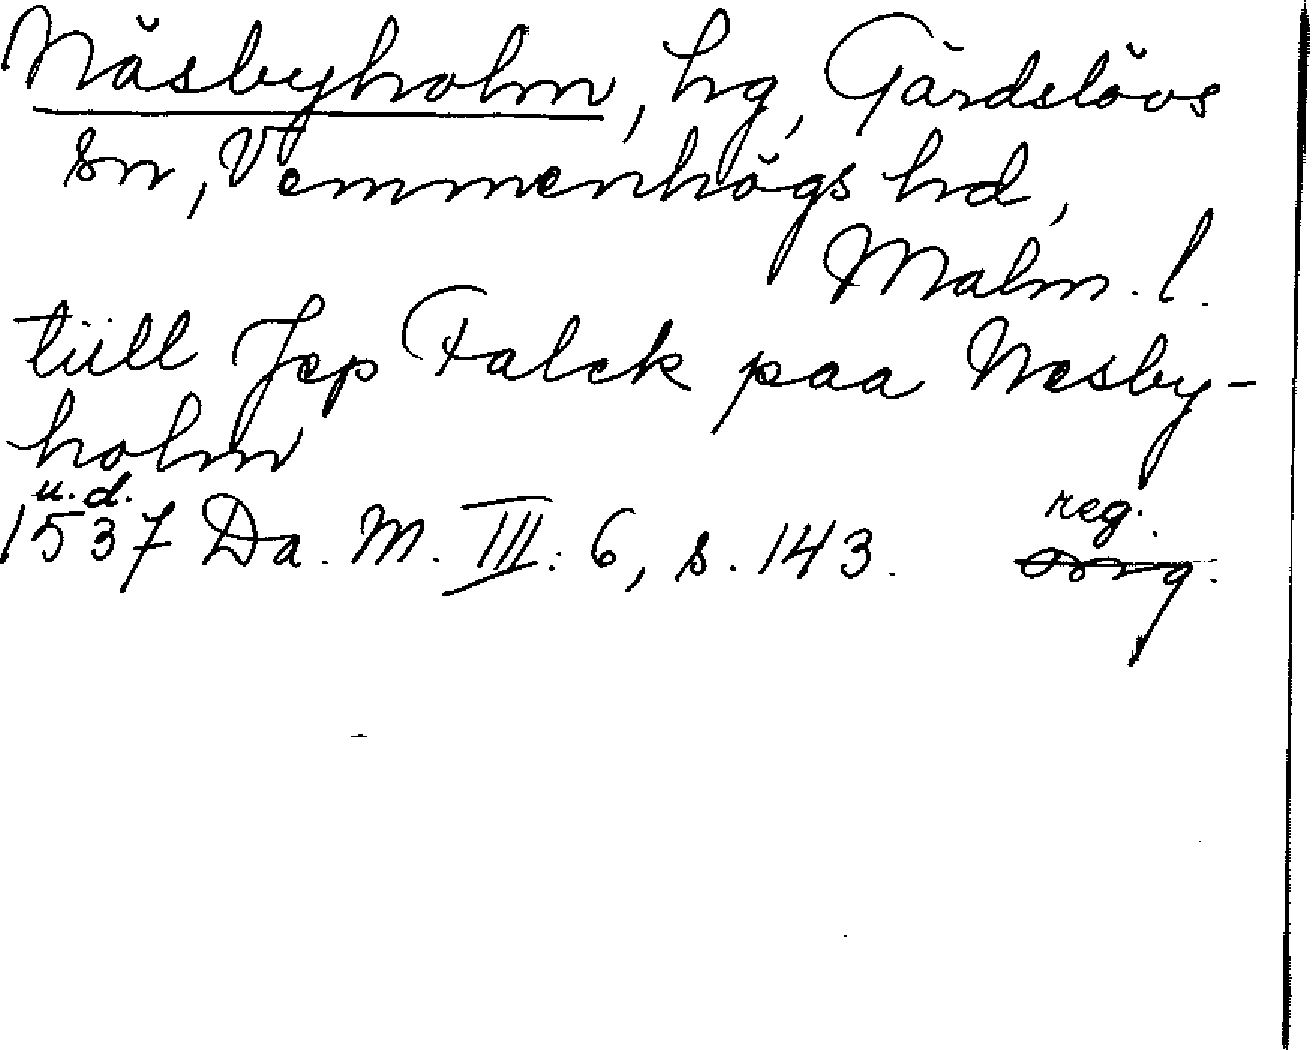 Näsbyholm, hg, Gärdslövs
sn, Vemmenhögs hd,
Malm. l.
tiill Jep Falck paa Nesby-
holm
u. d.
1537 Da. M. III: 6, s. 143. reg.
orig.